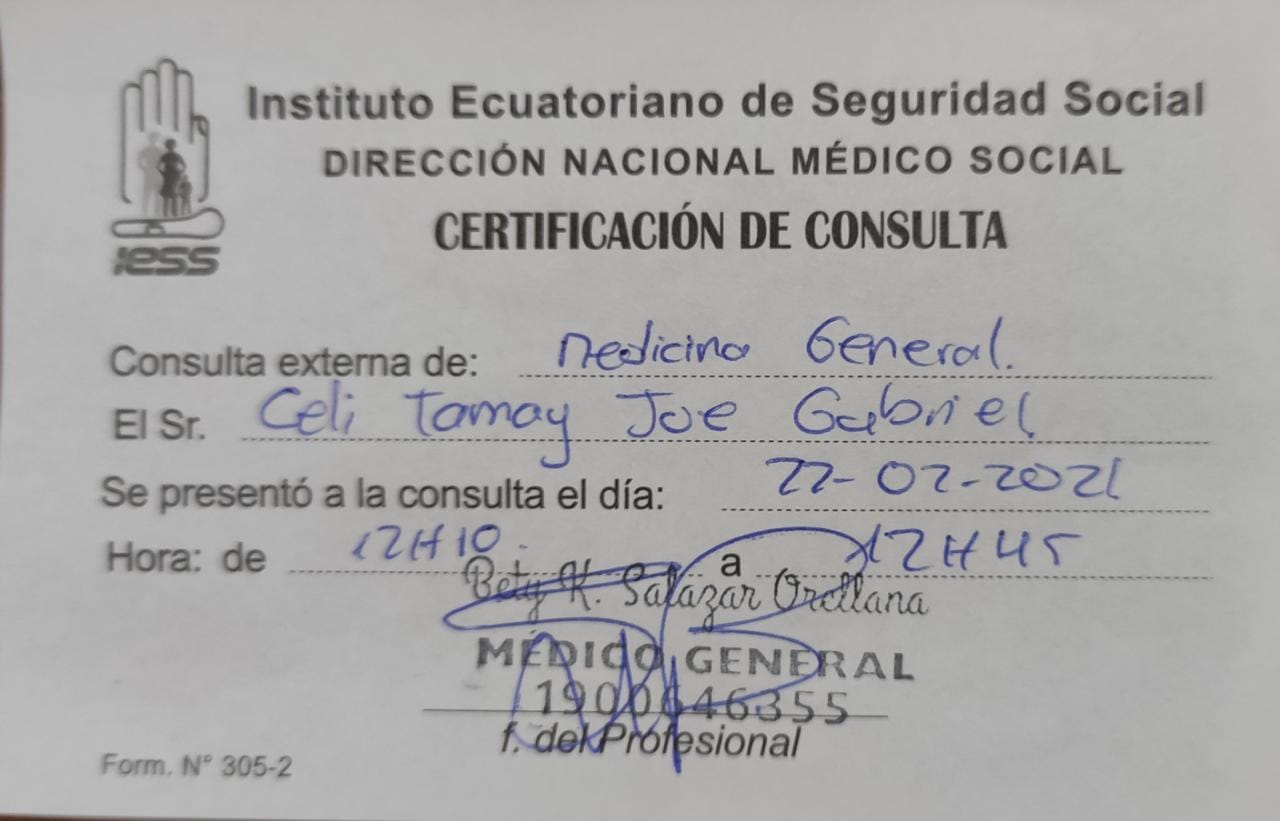 Instituto Ecuatoriano de Seguridad Social
DIRECCIÓN NACIONAL MÉDICO SOCIAL
CERTIFICACIÓN DE CONSULTA
IESS
Consulta externa de: Medicina General.
El Sr. Celi Tamay Joe Gabriel
Se presentó a la consulta el día: 22-02-2021
Hora: de 12H10 a 12H45
Bety K. Salazar Orellana
MÉDICO GENERAL
1900646355
f. del Profesional
Form. N° 305-2